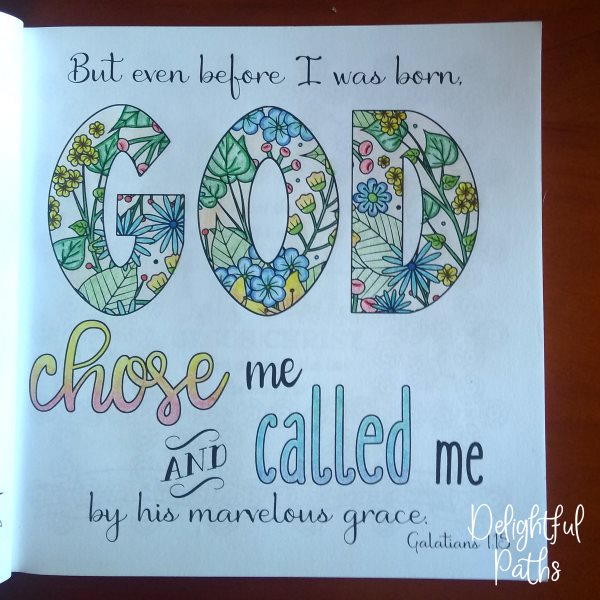 But even before I was born,
GOD
chose me
AND called me
by his marvelous grace.
Galatians 1:15
Delightful
Paths